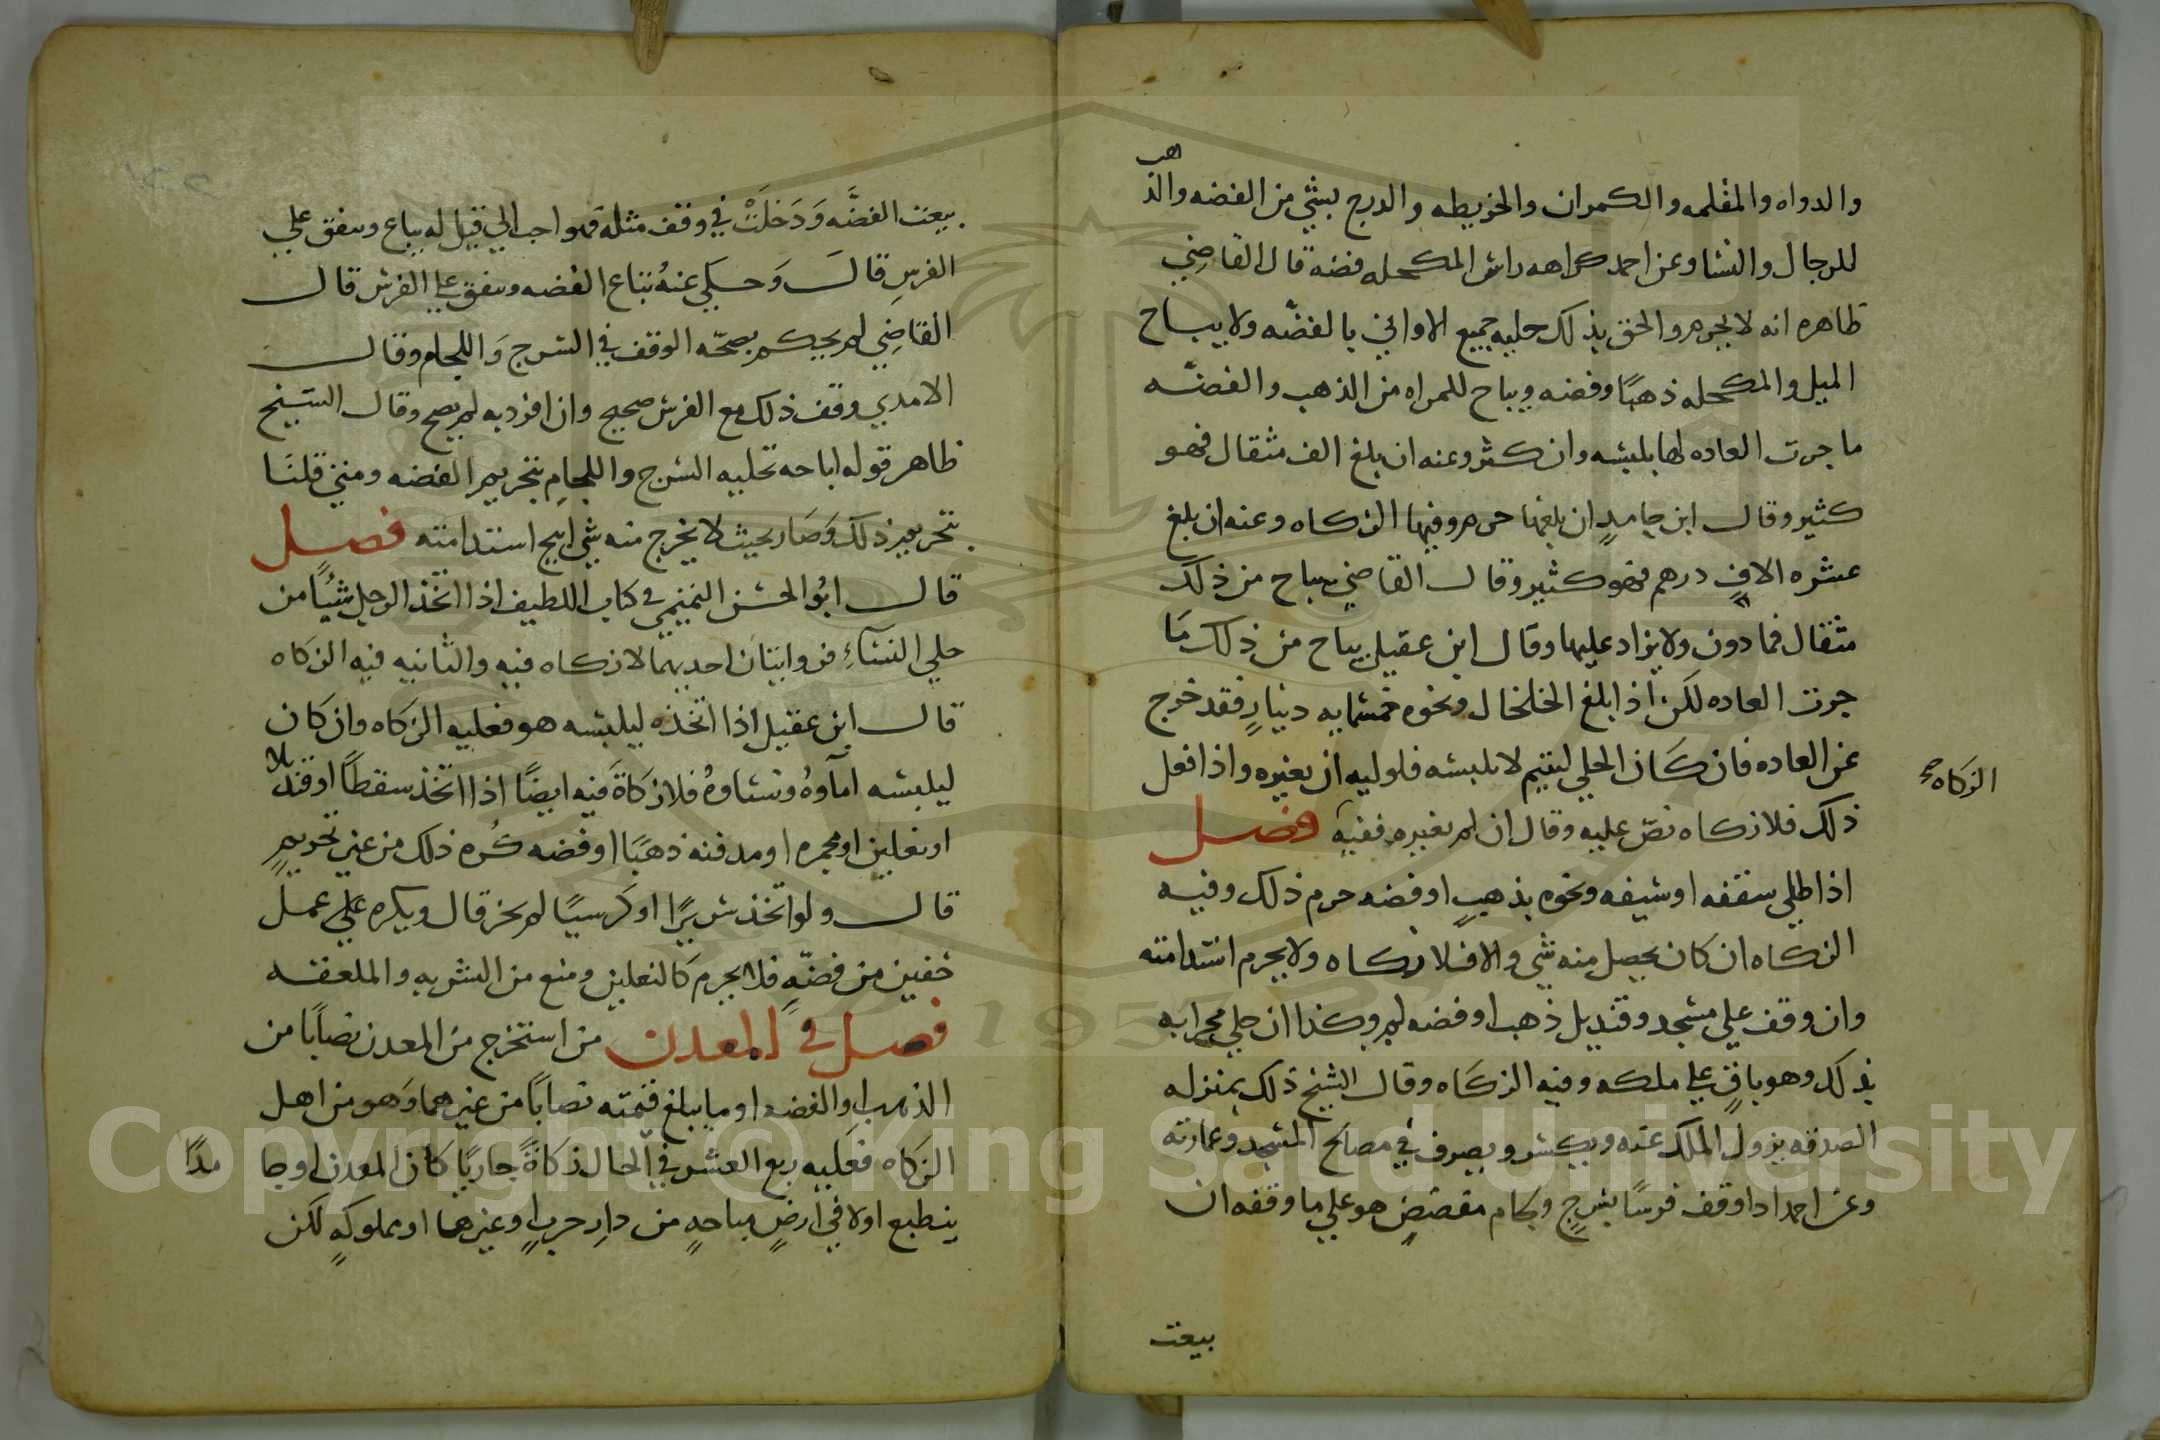 والدواه والمقلمه والكمران والخريطه والدرج بشي من الفضه والذهب
للرجال والنسا وعن احمد كراهه راس المكحله فضه قال القاضي
ظاهره انه لا يحرم والحق بذلك حليه جميع الاواني بالفضه ولا يباح
الميل والمكحله ذهبًا وفضه ويباح للمراه من الذهب والفضه
ما جرت العاده لها بلبسه وان كثر وعنه ان بلغ الف مثقال فهو
كثير وقال ابن حامدٍ ان بلغها حرم وفيها الزكاه وعنه ان بلغ
عشره الافٍ درهم فهو كثير وقال القاضي يباح من ذلك
مثقال فما دون ولا يزاد عليها وقال ابن عقيل يباح من ذلك مَا
جرت العاده لكن اذا بلغ الخلخال ونحوه خمسمايه دينارٍ فقد خرج
عن العاده فان كان الحلي ليتيم لا يلبسه فلوليه ان يعيره واذا فعل
ذلك فلا زكاه نصّ عليه وقال ان لم يعيره ففيه فصل
الزكاه صح
اذا طلي سقفه او سيفه ونحوه بذهبٍ او فضه حرم ذلك وفيه
الزكاه ان كان يحصل منه شي والا فلا زكاه ولا يحرم استدامته
وان وقف علي مسجد وقنديل ذهب او فضه لم وكذا ان حلي محرابه
بذلك وهو باقٍ علي ملكه وفيه الزكاه وقال الشيخ ذلك بمنزله
الصدقه يزول الملك عنه ويكسر ويصرف في مصالح المسجد وعمارته
وعن احمد اذا وقف فرسًا بسرجٍ ولجام مفضضٍ هو علي ما وقفه ان
بيعت
بيعت الفضَّه وَدَخلَتْ في وقف مثله فهو احب الي قيل له يباع وينفق علي
الفرسِ قال وَحكي عنهُ تباع الفضه وينفق علي الفرس قال
القاضِي لم يحكم بصحّه الوقف في السرج وَاللجام وقال
الامدي وقف ذلك مع الفرس صحيح وان افرد به لم يصح وقال الشيخ
ظاهر قوله اباحه تحليه السرج واللجامِ بتحريم الفضه ومتي قلنَا
بتحريم ذلك وَصَار بحيث لا يخرج منه شي ابيح استدامته فصل
قال ابُو الحسن التميمي في كتاب اللطيف اذا اتخذ الرجل شيًا من
حلي النسآءِ فروايتان احديهما لا زكاه فيه والثانيه فيه الزكاه
قال ابن عقيل اذا اتخذه ليلبسه هو فعليه الزكاه وان كان
ليلبسه امآوهُ ونساوهُ فلا زكاةَ فيه ايضًا اذا اتخذ سقطًا او قنديلا
او نعلين او مجمره او مدفنه ذهبًا او فضه كُره ذلك من غير تحريمٍ
قال ولو اتخذ سريرًا او كرسيًا لم يجز قال ويكره علي عمل
خفين من فضّهٍ فلا يحرم كالنعلين ومنع من الشربه والملعقه
فصل في المعدن من استخرج من المعدن نصابًا من
الذهب والفضه او ما يبلغ قيمته نصابًا من غيرهما وَهو من اهل
الزكاه فعليه ربع العشر في الحال زكاةً جاريًا كان المعدن او جا مدًا
ينطبع اولا في ارضٍ مباحهٍ من دارِ حربٍ وغيرها او مملوكهٍ لكن